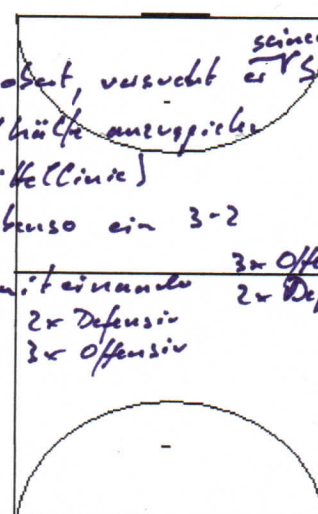 seinen
versucht er
hälfte anzuspielen
ebenso ein 3-2
3x Offe
miteinander 2x Def
2x Defensiv
3x Offensiv